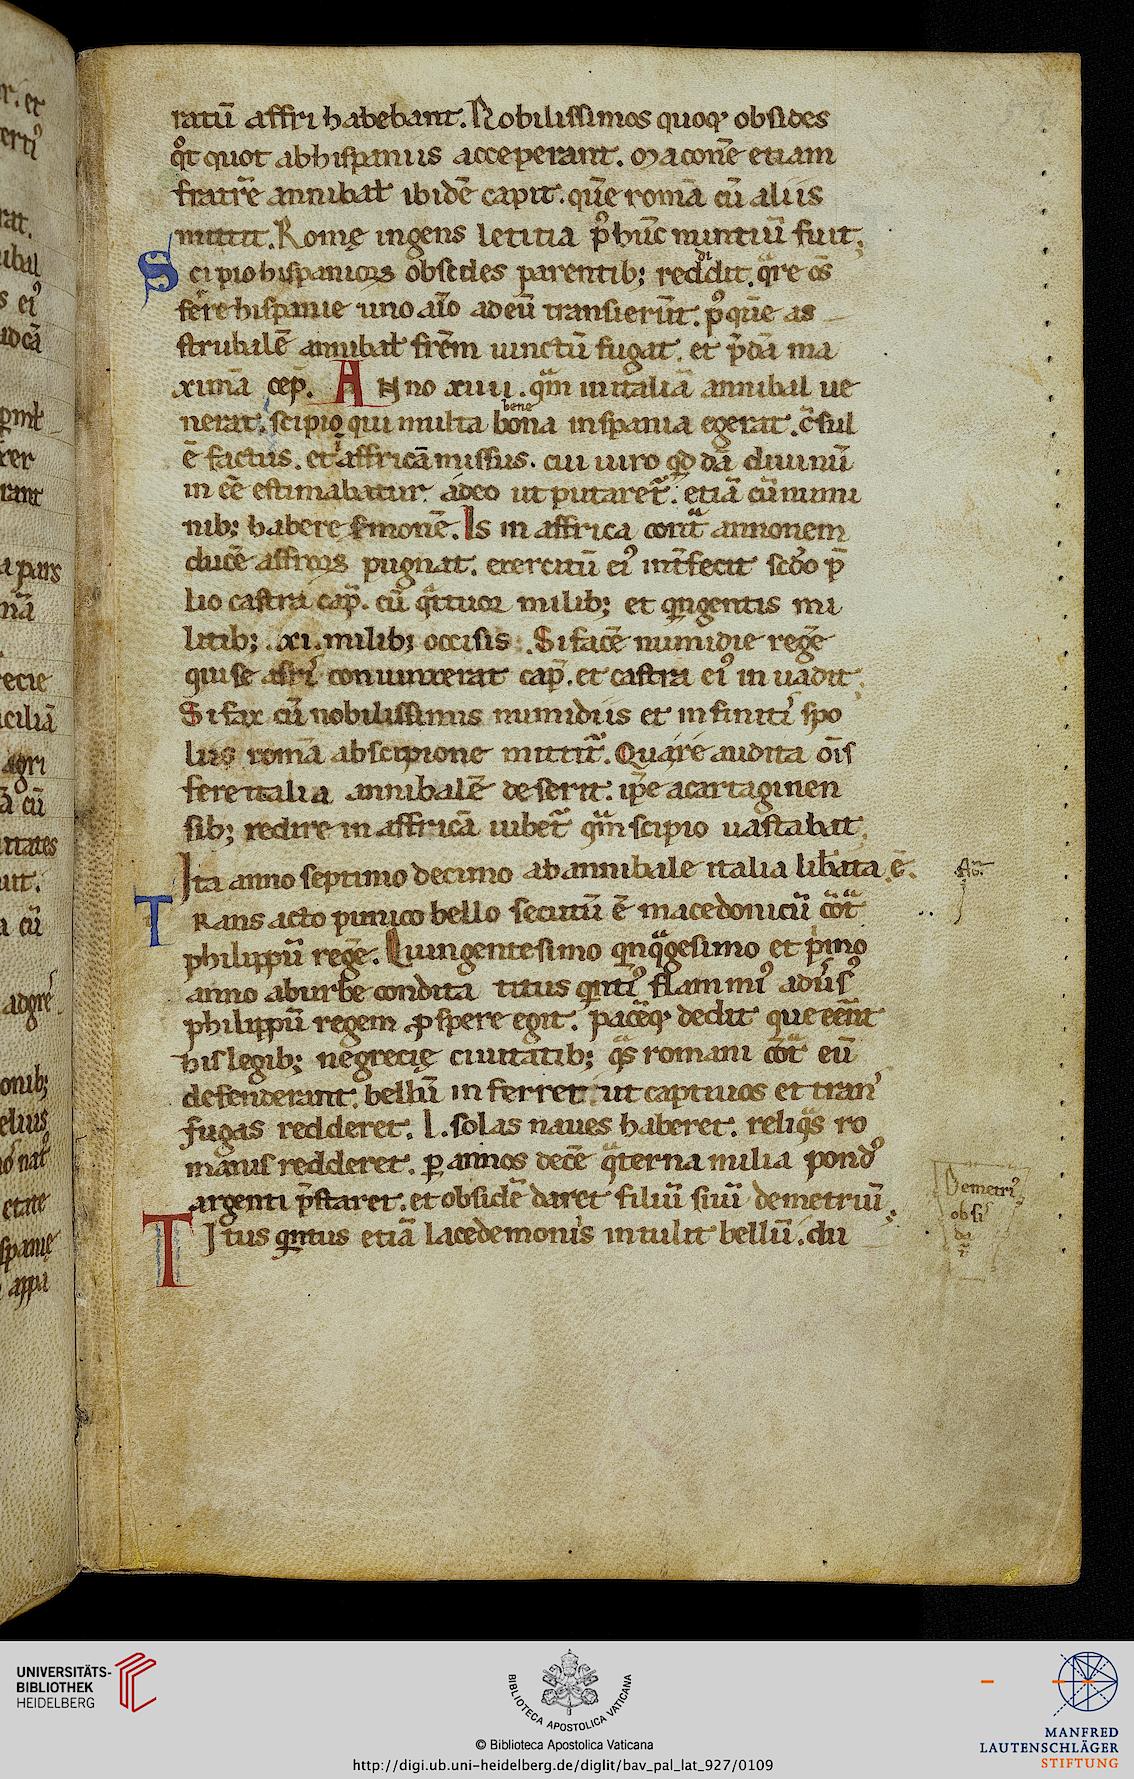 ratū affri habebant. Nobilissimos quoq; obsides
qͦt quot abhispanus acceperant. maconē etiam
fratrē annibaƚ ibidē capit. quē romā cū aliis
mittit. Romę ingens letitia pꝰ hūc nuntiū fuit;
Scipio hispanicoꝝ obsedes parentib; reddit. qͣre oēs
di
fere hispanie uno aīo adeū transierūt. pꝰ quē as
strubalē annibaƚ frēm uinctū fugat. et p̄dā ma
ximā cep̄. ANno xiiii. qͣm in italiā annibal ue
nerat. scipio qui multa bona inspania egerat. c̄sul
bene
ē factus. et affricā missus. cui uiro qd dā diuinū
in eē estimabatur. adeo ut putaret᷑. etiā cū numi
nib; habere sermonē. Is in affrica cont͛ annonem
ducē affroꝝ pugnat. exercitū eiꝰ int͛fecit scd̄o p̄
lio castra cap̄. cū qͣttuor milib; et qͥngentis mi
litib;. xi. milib; occisis. Sifacē numidie regē
qui se afris coniunxerat cap̄. et castra eiꝰ in uadit;
Sifax cū nobilissimis numidiis et infinitis spo
liis romā abscipione mittit᷑. Quare audita oīs
fere italia annibalē deserit. ip̄e acartaginen
sib; redire in affricā iubet᷑ qͣm scipio uastabat.
Ita anno septimo decimo ab annibale italia lib͛ata ē.
TRans acto punico bello secutū ē macedonicū cōt͛
philippū regē. Quingentesimo qͥnqͣgesimo et pͥmo
anno aburbe condita titus qͥntiꝰ flaminiꝰ adu͛sꝰ
philippū regem ꝓspere egit. pacēq; dedit que eēnt
his legib; negrecię ciuitatib; qͣs romani cōt͛ eū
defenderant. bellū in ferret. ut captiuos et tran
fugas redderet. l. solas naues haberet. reliqͣs ro
manis redderet. ꝑ annos decē qͣterna milia pondꝰ
argenti p̄staret. et obsidē daret filiū suū demetriū.
TItus qͥntus etiā lacedemoniis intulit bellū. du
Demetriꝰ
obsi
UNIVERSITÄTS-
BIBLIOTHEK
HEIDELBERG
BIBLIOTECA APOSTOLICA VATICANA
© Biblioteca Apostolica Vaticana
http://digi.ub.uni-heidelberg.de/diglit/bav_pal_lat_927/0109
MANFRED
LAUTENSCHLÄGER
STIFTUNG